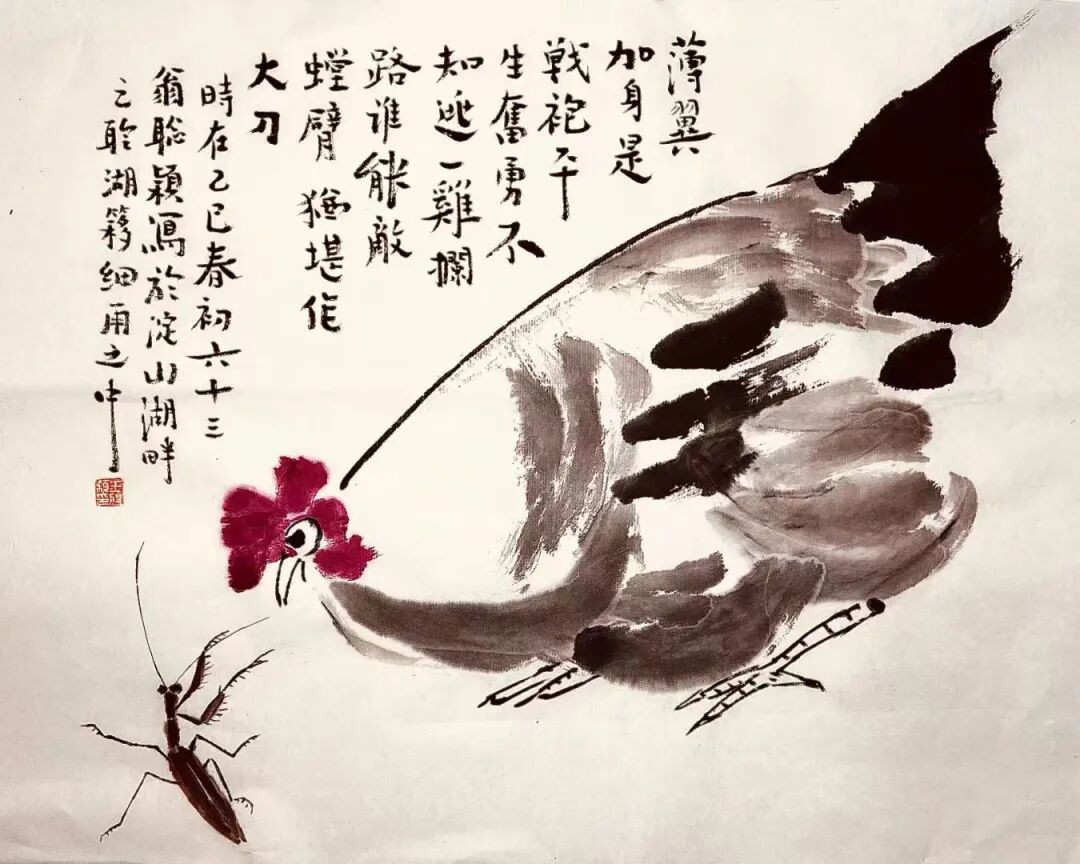 薄翼
加身是
戰袍平
生奮勇不
知逃一雞攔
路誰能敵
螳臂猶堪作
大刀
時在乙巳春初六十三
翁聪穎寫於淀山湖畔
之聆湖簃細雨之中